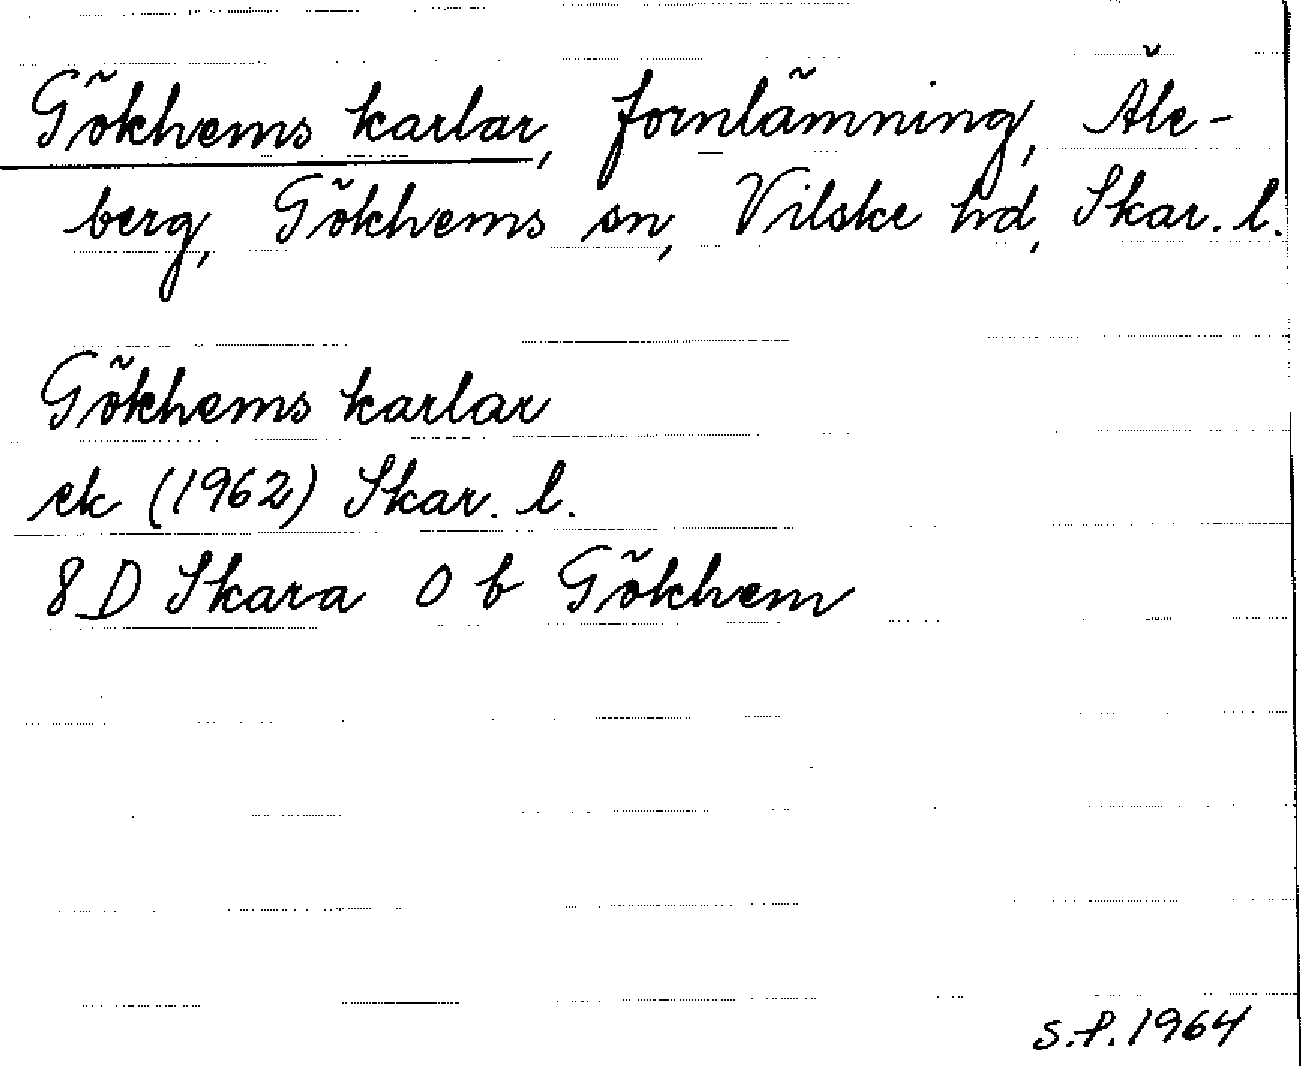 Gökhems karlar, fornlämning, Äle-
berg, Gökhems sn, Vilske hd, Skar. l.
Gökhems karlar
ek (1962) Skar. l.
8 D Skara 0 b Gökhem
S.P. 1964